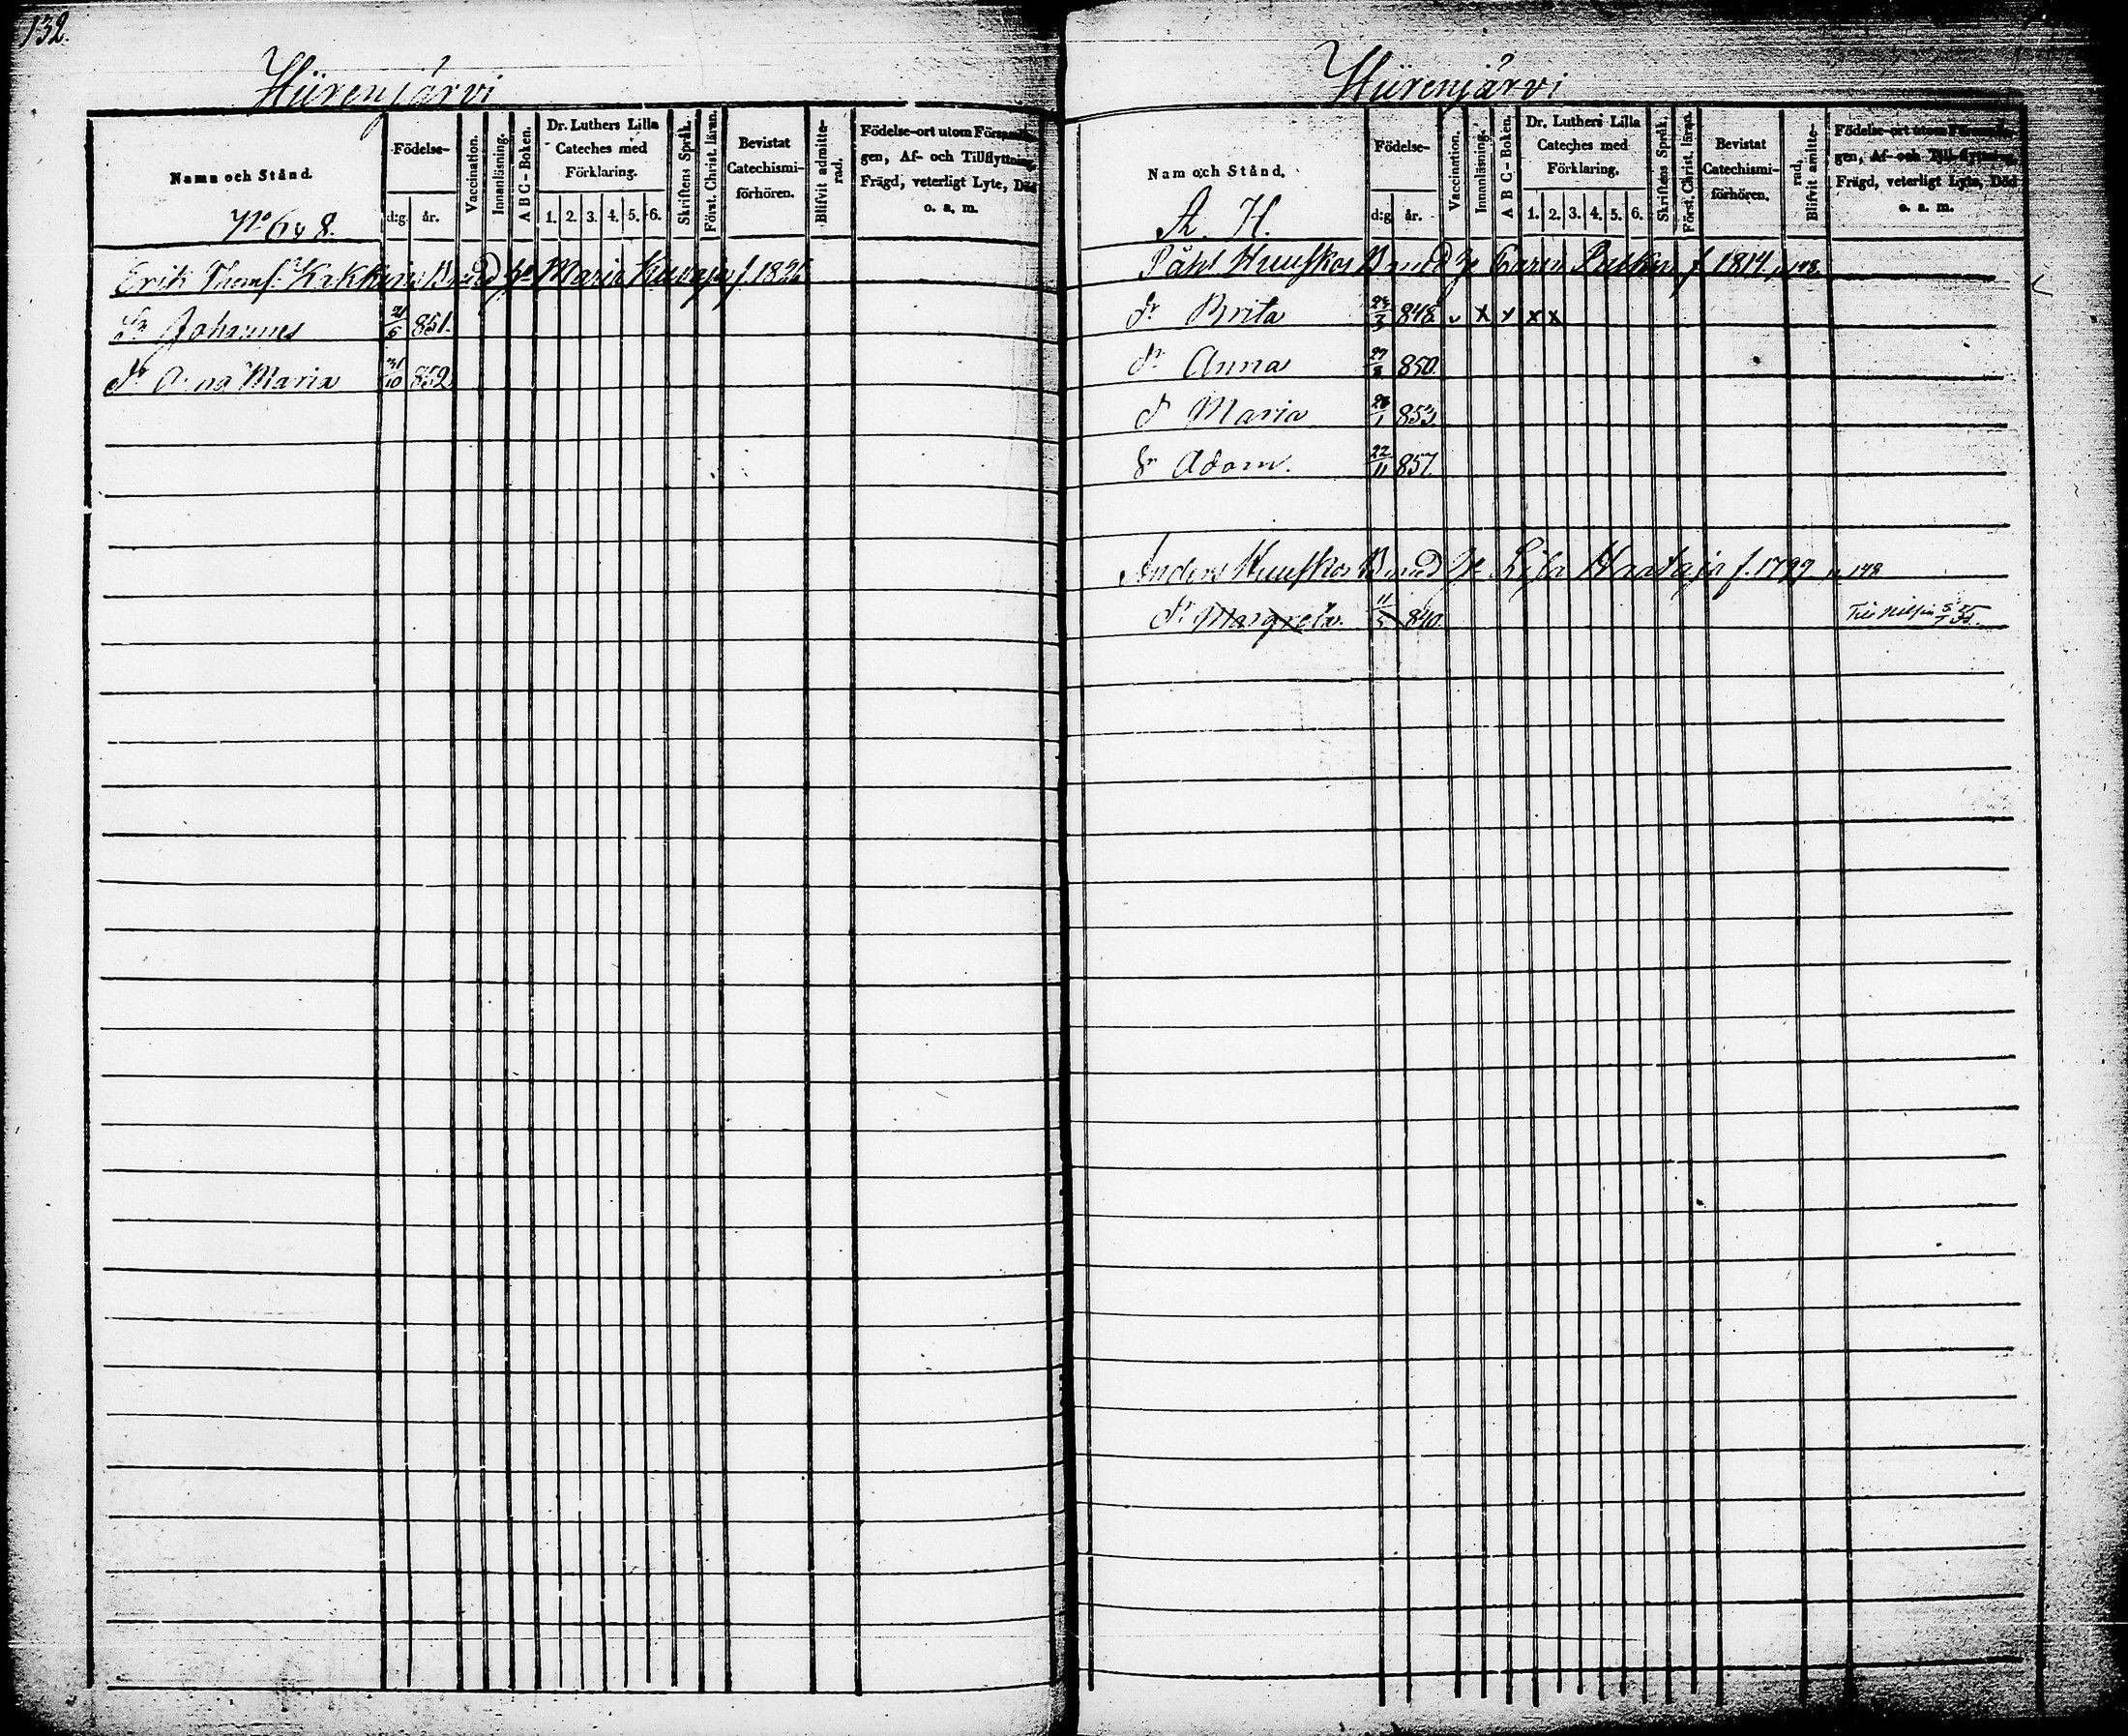 132.
Hiirenjärvi
Namn och Stånd.
Födelse-
d:g. år.
Vaccination.
Innanläsning.
A B C - Boken.
Dr. Luthers Lilla
Cateches med
Förklaring.
1. 2. 3. 4. 5. 6.
Skriftens Språk.
Först. Christ. läran.
Bevistat
Catechismi-
förhören.
Blifvit admitte-
rad.
Födelse-ort utom Församlin-
gen, Af- och Tillflyttning,
Frägd, veterligt Lyte, Död
o. a. m.
No 6 8.
Erik Kakkinen B med hu Maria f. 1826
Sn Johannes 21/5 851.
dr Anna Maria 31/10 852
Hiirenjärvi
Namn och Stånd.
Födelse-
d:g år.
Vaccination.
Innanläsning.
A B C - Boken.
Dr. Luthers Lilla
Cateches med
Förklaring.
1. 2. 3. 4. 5. 6.
Skriftens Språk.
Först. Christ. läran.
Bevistat
Catechismi-
förhören.
rad,
Blifvit amitte-
Födelse-ort utom Försam-
gen, Af- och Till-flyttning,
Frägd, veterligt Lyte, Död
o. a. m.
A. H.
Påhl Huuskos B med Carin f 1814. p 148.
dr Brita 848. v x x x x
dr Anna 27/8 850.
dr Maria 853.
Sn Adam. 22/11 857.
Anders Huuskos B med Lisa Haataja f. 1797. p. 148
dr Margreta. 11/5 840.